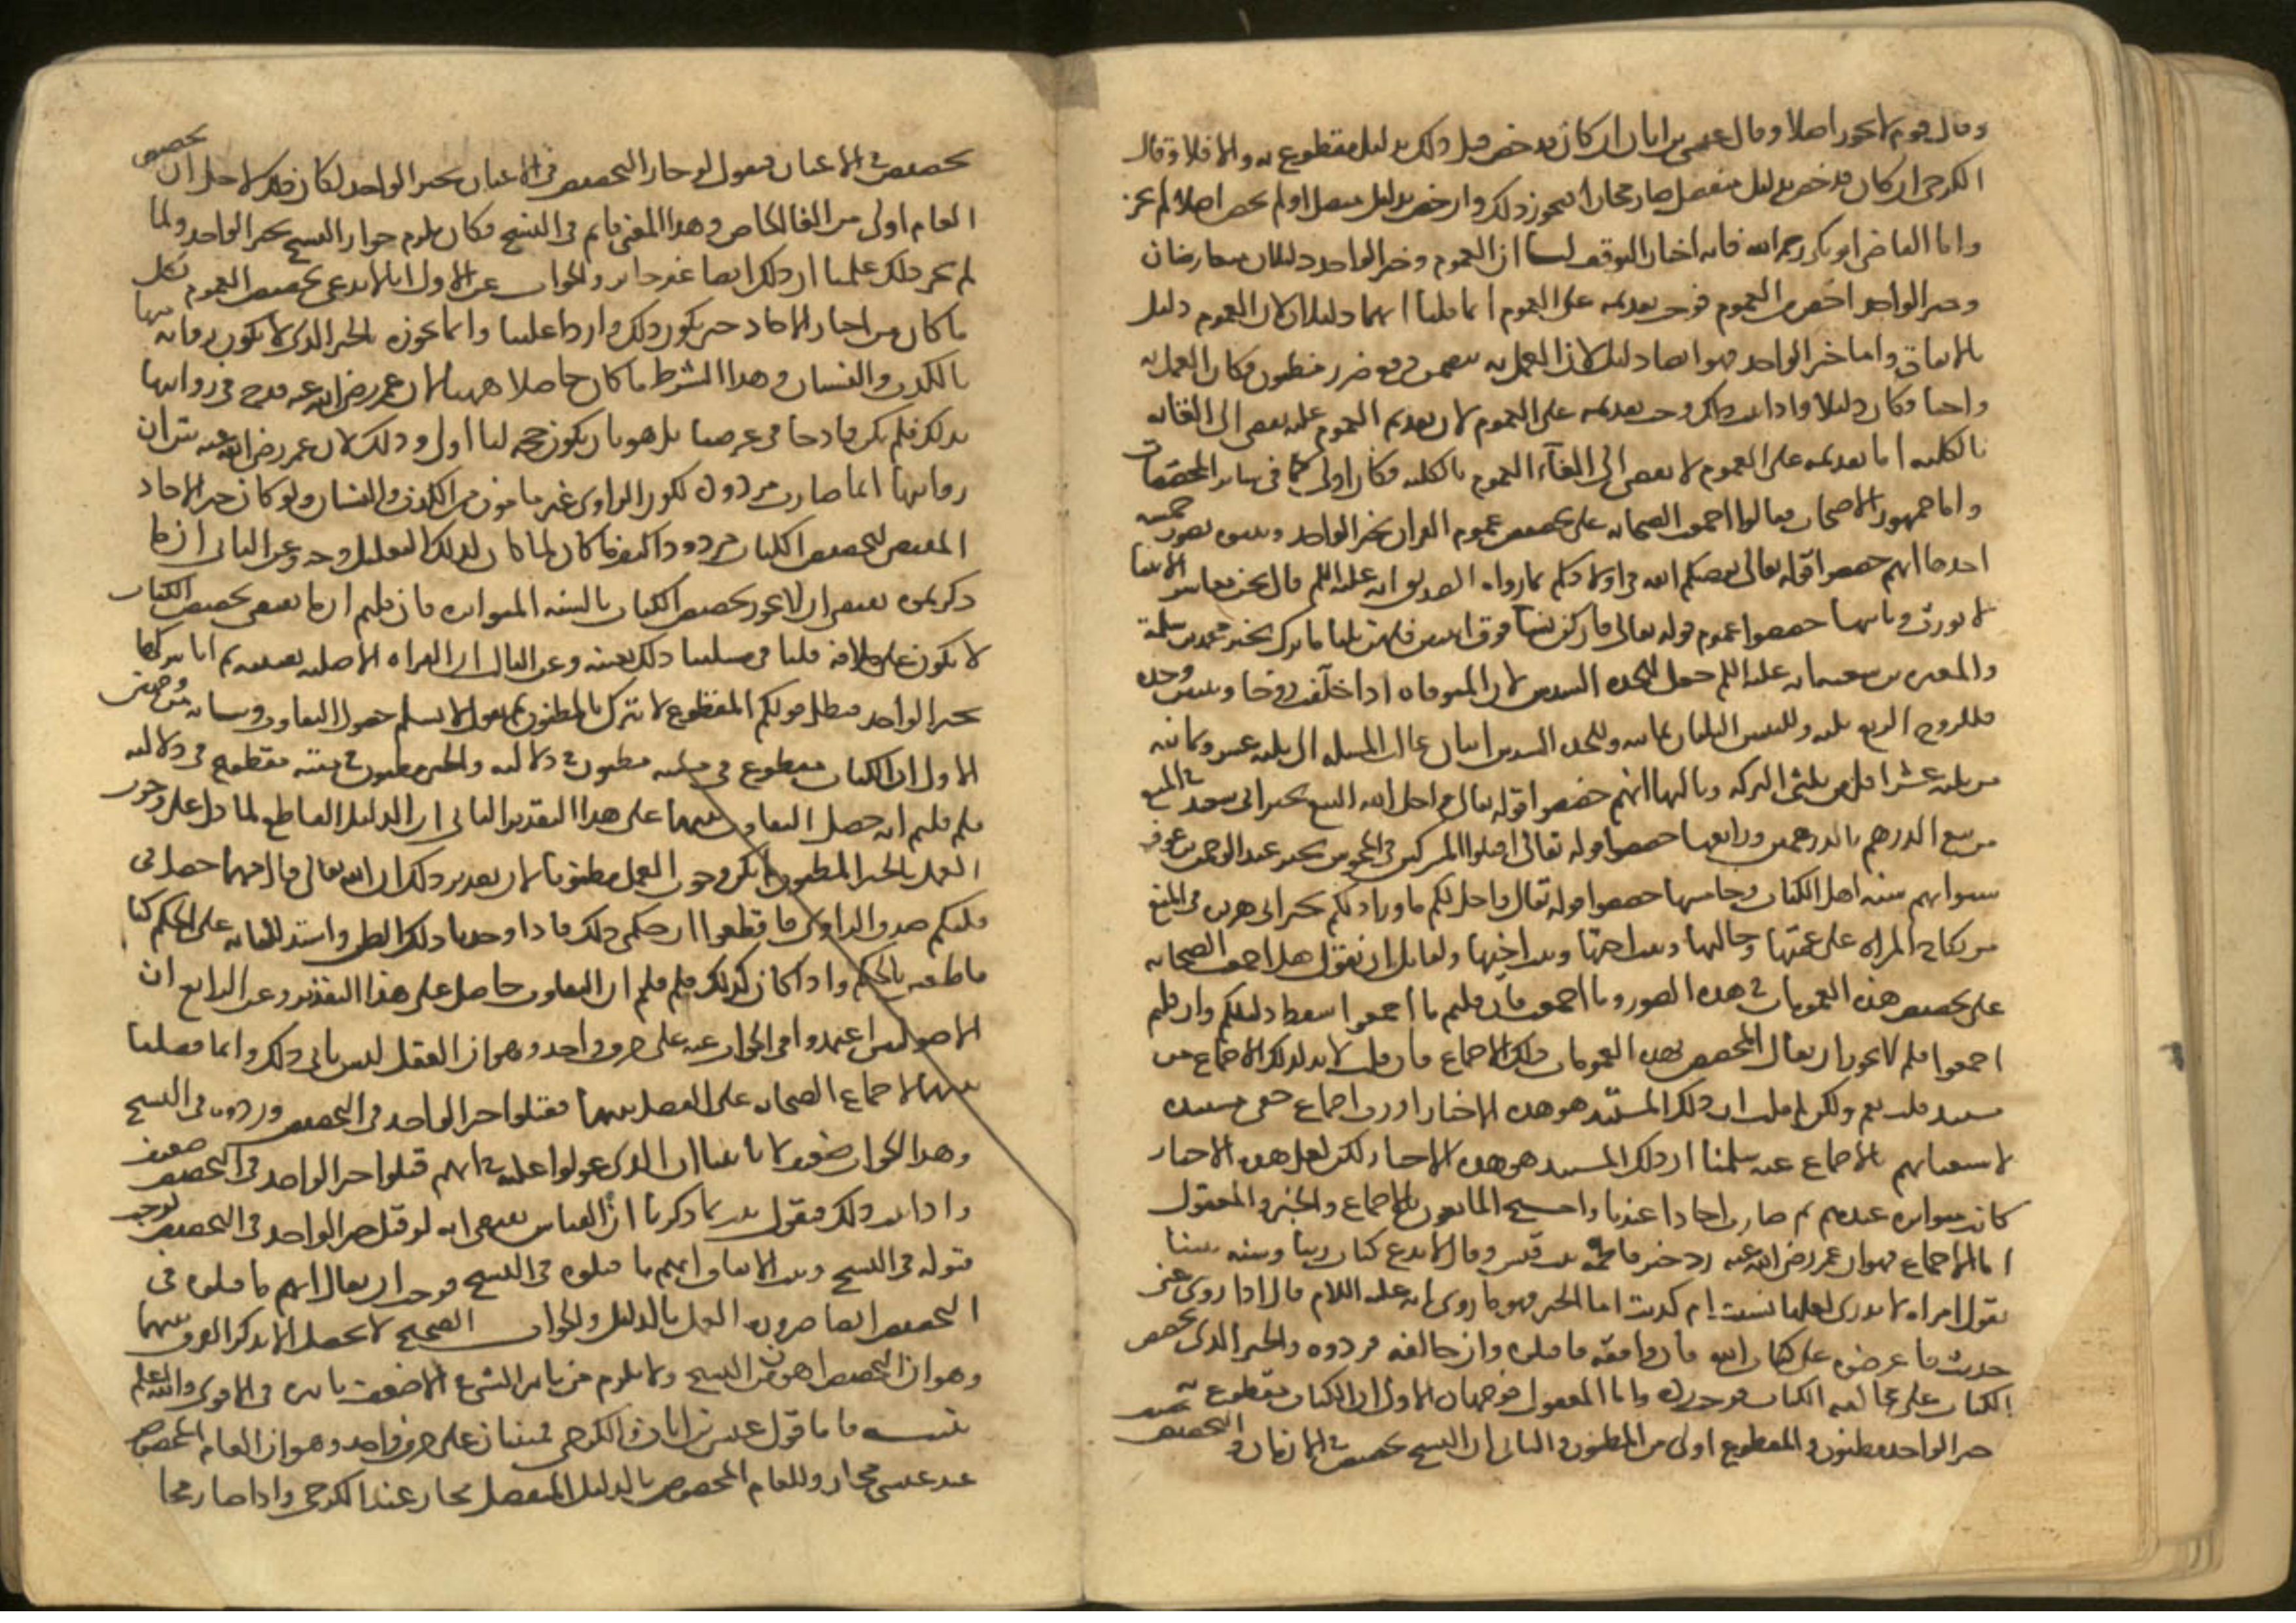 وقال قوم لا يجوز اصلا وقال عيسى بن ابان ان كان قد خص قبل ذلك بدليل مقطوع به والا فلا وقال
الكرخي ان كان قد خص بدليل منفصل صار مجازا فيجوز ذلك وان خص بدليل متصل او لم يخص اصلا لم يجز
واما القاضي ابو بكر رحمه الله فانه اختار التوقف لنا ان العموم وخبر الواحد دليلان متعارضان
وخبر الواحد اخص من العموم فوجب تقديمه على العموم انما قلنا انهما دليلان لان العموم دليل
بالاتفاق واما خبر الواحد فهو ايضا دليل لان العمل به يتضمن دفع ضرر مظنون فكان العمل به
واجبا فكان دليلا واذا ثبت ذلك وجب تقديمه على العموم لان تقديم العموم عليه يفضي الى الغائه
بالكلية اما تقديمه على العموم لا يفضي الى الغاء العموم بالكلية فكان اولى كما في سائر المخصصات
واما جمهور الاصحاب فقالوا اجمعت الصحابة على تخصيص عموم القران بخبر الواحد وبينوه بصور خمسة
احدها انهم خصصوا قوله تعالى يوصيكم الله في اولادكم بما رواه الصديق انه عليه السلم قال نحن معاشر الانبيا
لا نورث وثانيها خصصوا عموم قوله تعالى فان كن نساء فوق اثنتين فلهن ثلثا ما ترك بخبر محمد بن مسلمة
والمغيرة بن شعبة انه عليه السلم جعل للجدة السدس لان المتوفاة اذا خلفت زوجا وبنتين وجدة
فللزوج الربع ثلثة وللبنتين الثلثان ثمانية وللجدة السدس اثنان عالت المسئلة الى ثلثة عشر وثمانية
من ثلثة عشر اقل من ثلثي التركة وثالثها انهم خصصوا قوله تعالى واحل الله البيع بخبر ابي سعيد في المنع
من بيع الدرهم بالدرهمين ورابعها خصصوا قوله تعالى اقتلوا المشركين في المجوس بخبر عبد الرحمن بن عوف
سنوا بهم سنة اهل الكتاب وخامسها خصصوا قوله تعالى واحل لكم ما وراء ذلكم بخبر ابي هريرة في المنع
من نكاح المراة على عمتها وخالتها وبنت اختها وبنت اخيها ولقائل ان يقول هل اجمعت الصحابة
على تخصيص هذه العمومات في هذه الصور وما اجمعت فان قلتم ما اجمعوا سقط دليلكم وان قلتم
اجمعوا فلم لا يجوز ان يقال المخصص لهذه العمومات ذلك الاجماع فان قلت لا بد لذلك الاجماع من
مستند قلت نعم ولكن لم قلت ان ذلك المستند هو هذه الاخبار اورب اجماع خفي مستنده
لاستغنائهم بالاجماع عنه سلمنا ان ذلك المستند هو هذه الاخبار لكن لعل هذه الاخبار
كانت متواترة عندهم ثم صارت احادا عندنا واحتج المانعون بالاجماع والخبر والمعقول
اما الاجماع فهو ان عمر رضي الله عنه رد خبر فاطمة بنت قيس وقال لا ندع كتاب ربنا وسنة نبينا
بقول امراة لا ندري لعلها نسيت ام كذبت اما الخبر فهو ما روي انه عليه السلام قال اذا روي عني
حديث فاعرضوه على كتاب الله فان وافقه فاقبلوه وان خالفه فردوه والخبر الذي يخصص
الكتاب على مخالفة الكتاب فوجب رده واما المعقول فوجهان الاول ان الكتاب مقطوع به
خبر الواحد مظنون والمقطوع اولى من المظنون والثاني ان النسخ تخصيص في الازمان والتخصيص
تخصيص في الاعيان فنقول لو جاز التخصيص في الاعيان بخبر الواحد لكان ذلك لاجل ان تخصيص
العام اولى من الغا الخاص وهذا المعنى قائم في النسخ فكان يلزم جواز النسخ بخبر الواحد ولما
لم يجز ذلك علمنا ان ذلك ايضا غير جائز والجواب عن الاول انا لا ندعي تخصيص العموم بكل
ما كان من اخبار الاحاد حتى يكون ذلك واردا علينا وانما نجوزه بالخبر الذي لا يكون راويه متهما
بالكذب والنسيان وهذا الشرط ما كان حاصلا ههنا لان عمر رضي الله عنه قدح في روايتها
بذلك فلم يكن قادحا في غرضنا بل هو بان يكون حجة لنا اولى وذلك لان عمر رضي الله عنه بين ان
روايتها انما صارت مردودة لكون الراوي غير مامون من الكذب والنسيان ولو كان خبر الاحاد
المقتضي لتخصيص الكتاب مردودا كيف ما كان لما كان لذلك التعليل وجه وعن الثاني ان ما
ذكرتموه يقتضي ان لا يجوز تخصيص الكتاب بالسنة المتواترة فان قلتم ان ما يقتضي تخصيص الكتاب
لا يكون على خلافه قلنا في مسئلتنا ذلك بعينه وعن الثالث ان البراة الاصلية يقينية ثم انا نتركها
بخبر الواحد فبطل قولكم المقطوع لا يترك بالمظنون ثم نقول لا نسلم حصول التفاوت وبيانه من وجهين
الاول ان الكتاب مقطوع في متنه مظنون في دلالته والخبر مظنون في متنه مقطوع في دلالته
فلم قلتم انه حصل التفاوت بينهما على هذا التقدير الثاني ان الدليل القاطع لما دل على وجوب
العمل بالخبر المظنون لم يكن وجوب العمل مظنونا لان تقدير ذلك ان الله تعالى قال مهما حصل في
قلبكم صدق الراوي فاقطعوا ان حكمي ذلك فاذا وجدنا ذلك الظن واستدللنا به على الحكم كنا
قاطعين بالحكم واذا كان كذلك فلم قلتم ان التفاوت حاصل على هذا التقدير وعن الرابع ان
الاصوليين اعتمدوا في الجواب عنه على حرف واحد وهو ان العقل ليس يابى ذلك وانما فصلنا
بينهما لاجماع الصحابة على الفصل بينهما فقبلوا خبر الواحد في التخصيص وردوه في النسخ
وهذا الجواب ضعيف لانا بينا ان الذي عولوا عليه في انهم قبلوا خبر الواحد في التخصيص ضعيف
واذا ثبت ذلك فنقول ثبت بما ذكرنا ان القياس يقتضي انه لو قبل خبر الواحد في التخصيص لوجب
قبوله في النسخ وثبت بالاتفاق انهم ما قبلوه في النسخ فوجب ان يقال انهم ما قبلوه في
التخصيص ايضا ضرورة العمل بالدليل والجواب الصحيح لا يحصل الا بذكر الفرق بينهما
وهو ان التخصيص اهون من النسخ ولا يلزم من تاثير الشيء في الاضعف تاثيره في الاقوى والله اعلم
تنبيه فاما قول عيسى بن ابان والكرخي فمبنيان على حرف واحد وهو ان العام المخصوص
عند عيسى مجاز وللعام المخصوص بالدليل المنفصل مجاز عند الكرخي واذا صار مجازا